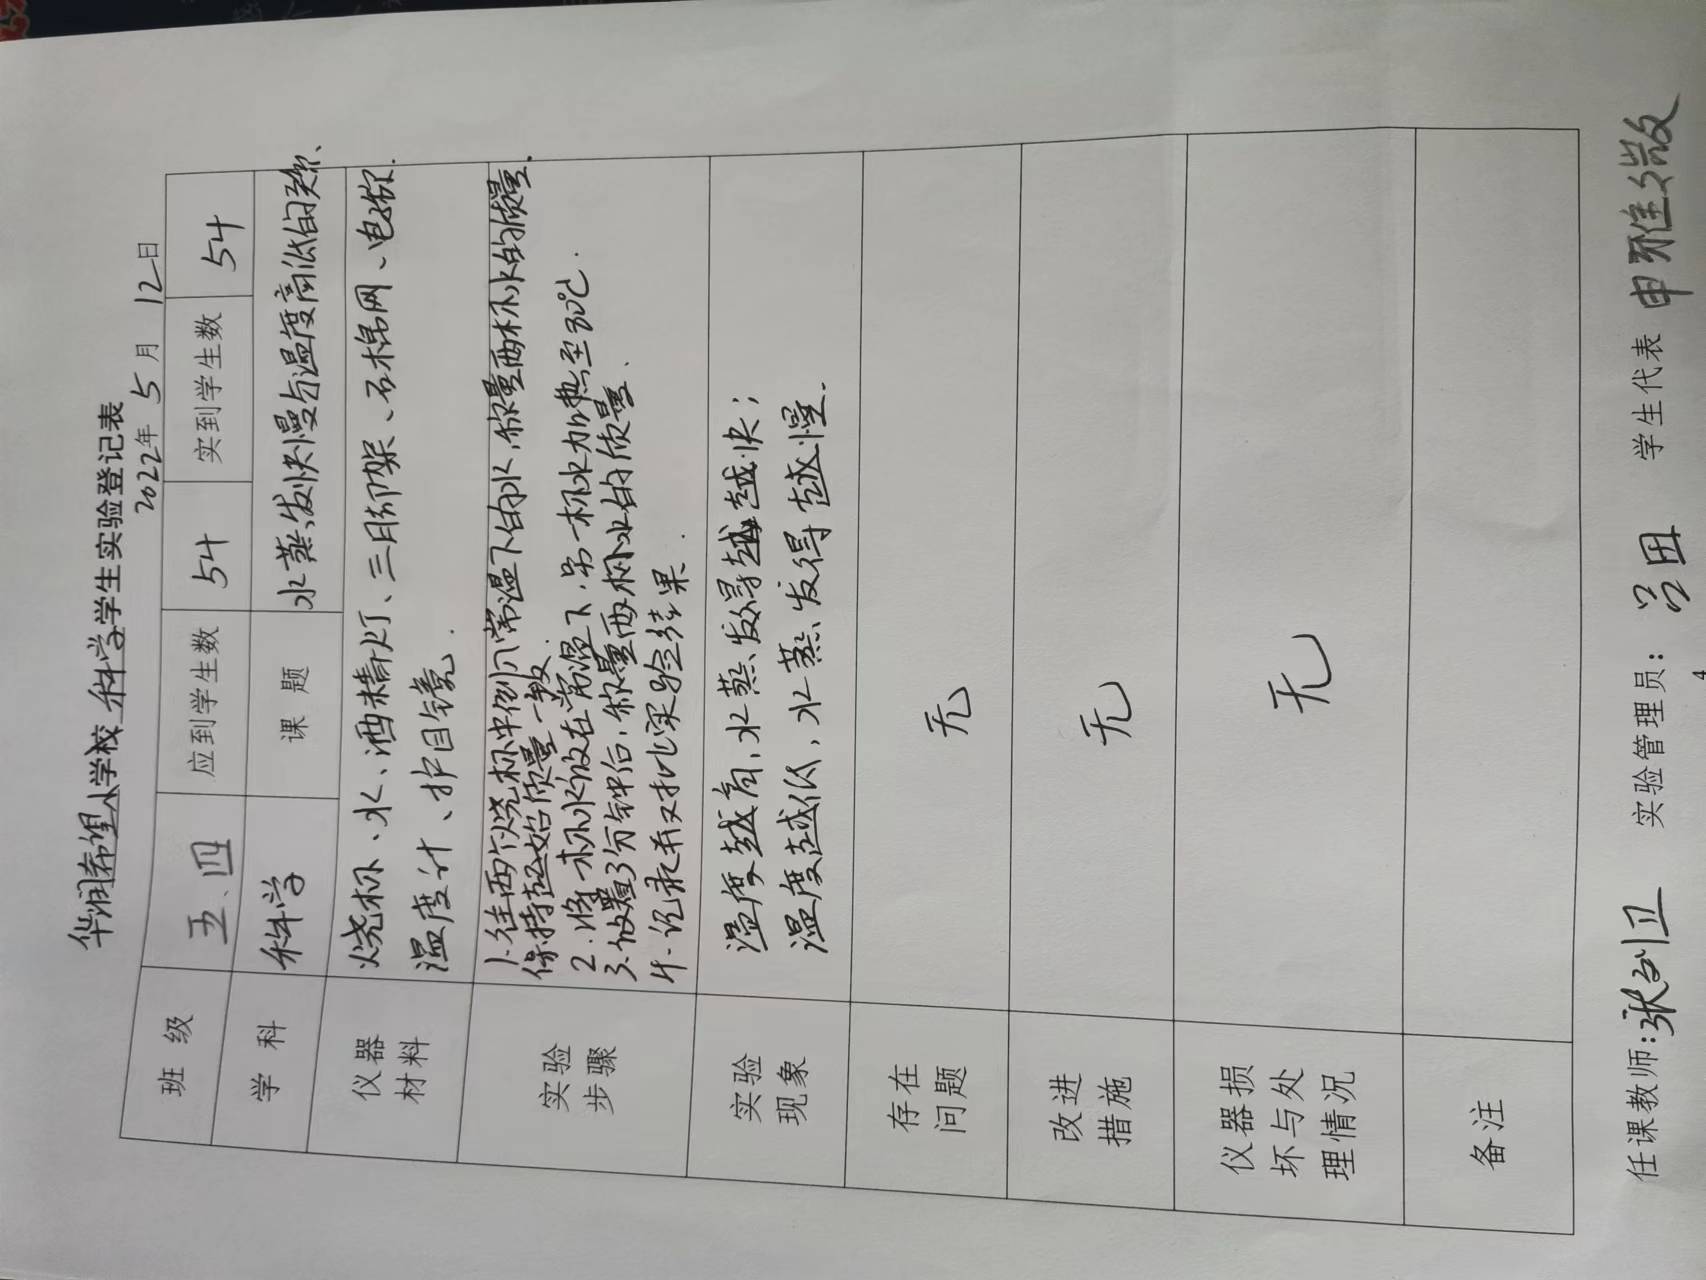 华润希望小学校 科学 学生实验登记表
2022年 5 月 12 日
班 级 五、四 应到学生数 54 实到学生数 54
学 科 科学 课 题 水蒸发快慢与温度高低的关系、
仪器
材料
烧杯、水、酒精灯、三脚架、石棉网、电子称、
温度计、护目镜.
实验
步骤
1.往两个烧杯中倒入常温下的水,称量两杯水的质量.
保持起始质量一致.
2.将一杯水放在常温下.另一杯水加热至30℃.
3.放置3分钟后,称量两杯水的质量.
4.记录并对比实验结果.
实验
现象
温度越高,水蒸发得越越快;
温度越低,水蒸发得越慢.
存在
问题
无
改进
措施
无
仪器损
坏与处
理情况
无
备注
任课教师: 张剑卫 实验管理员: 吕田 学生代表 申雅薇
4